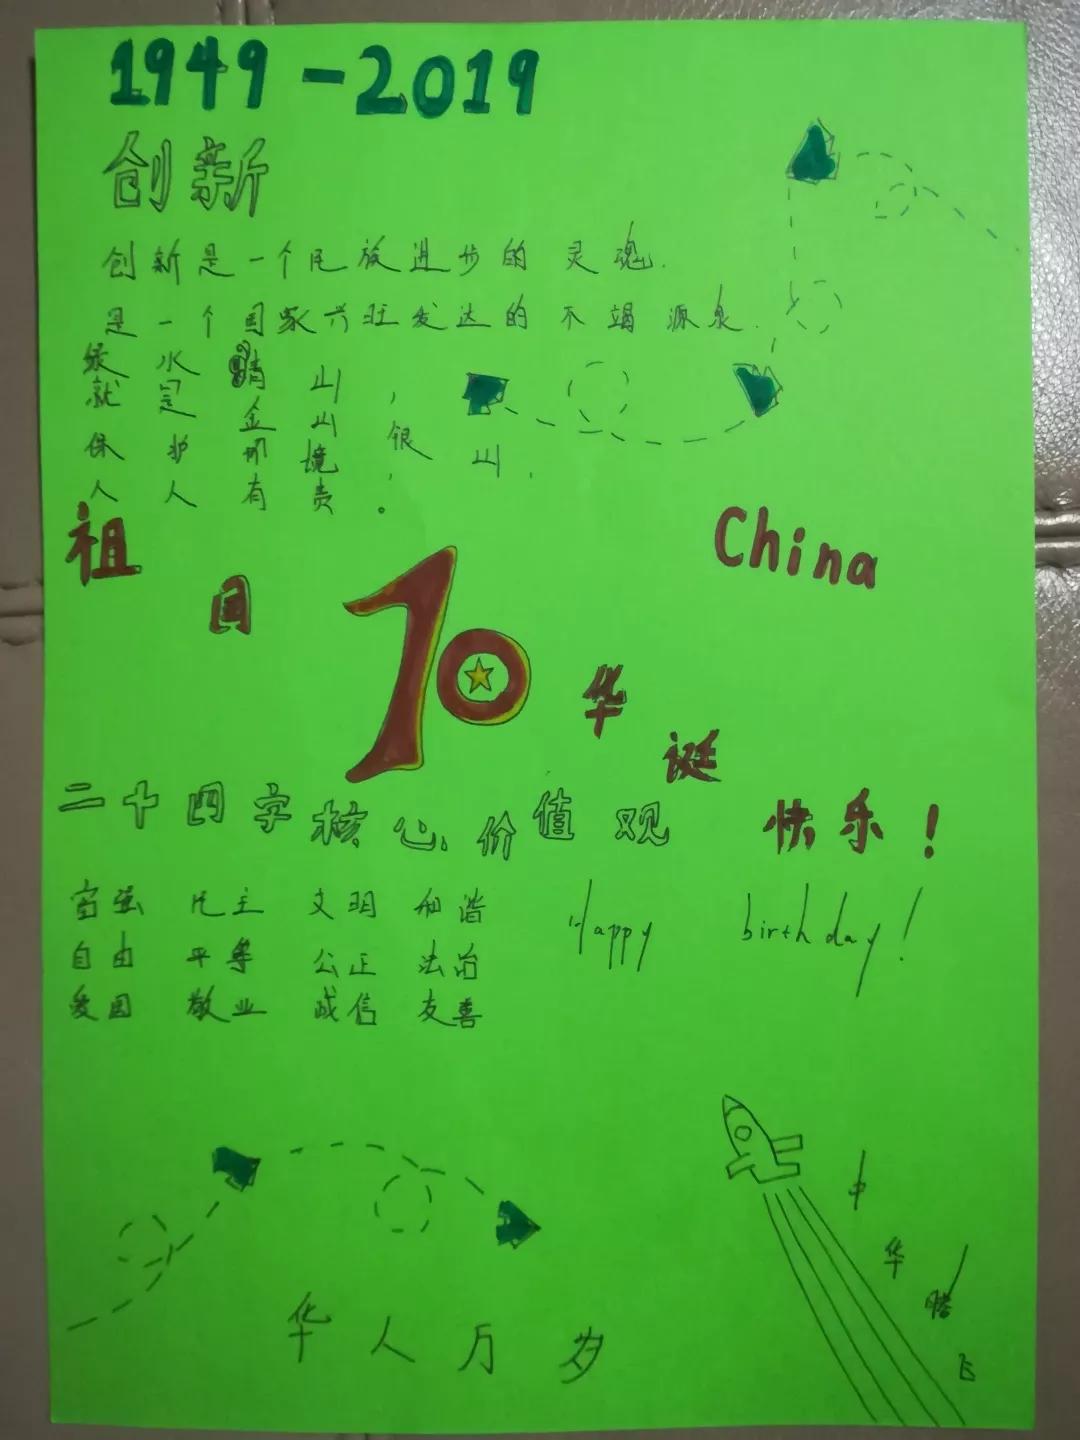 1949-2019
创新
创新是一个民族进步的灵魂.
是一个国家兴旺发达的不竭源泉.
绿水青山,
就是金山银山.
保护环境
人人有责。
祖国70华诞
China
快乐!
二十四字核心价值观
富强 民主 文明 和谐
自由 平等 公正 法治
爱国 敬业 诚信 友善
Happy birthday!
中华腾飞
华人万岁